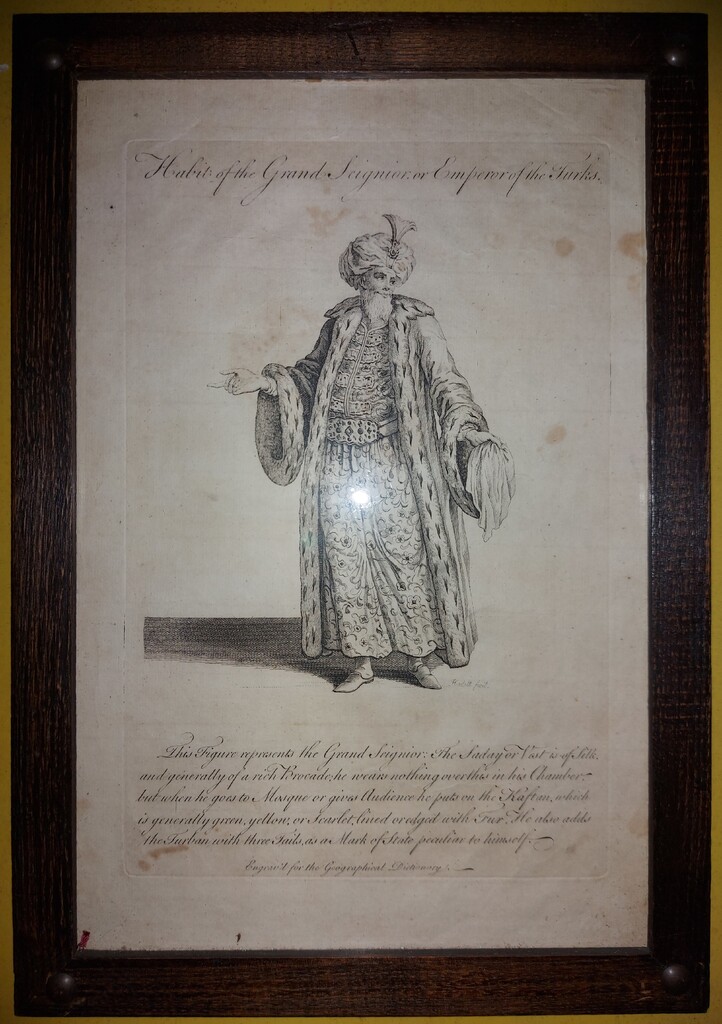 Habit of the Grand Seignior, or Emperor of the Turks.
fecit.
This Figure represents the Grand Seignior: The Saday or Vest is of Silk,
and generally of a rich Brocade; he wears nothing over this in his Chamber;
but when he goes to Mosque or gives Audience he puts on the Kaftan, which
is generally green, yellow, or Scarlet, lined or edged with Furr. He also adds
the Turban with three Tails, as a Mark of State peculiar to himself.
Engrav'd for the Geographical Dictionary.